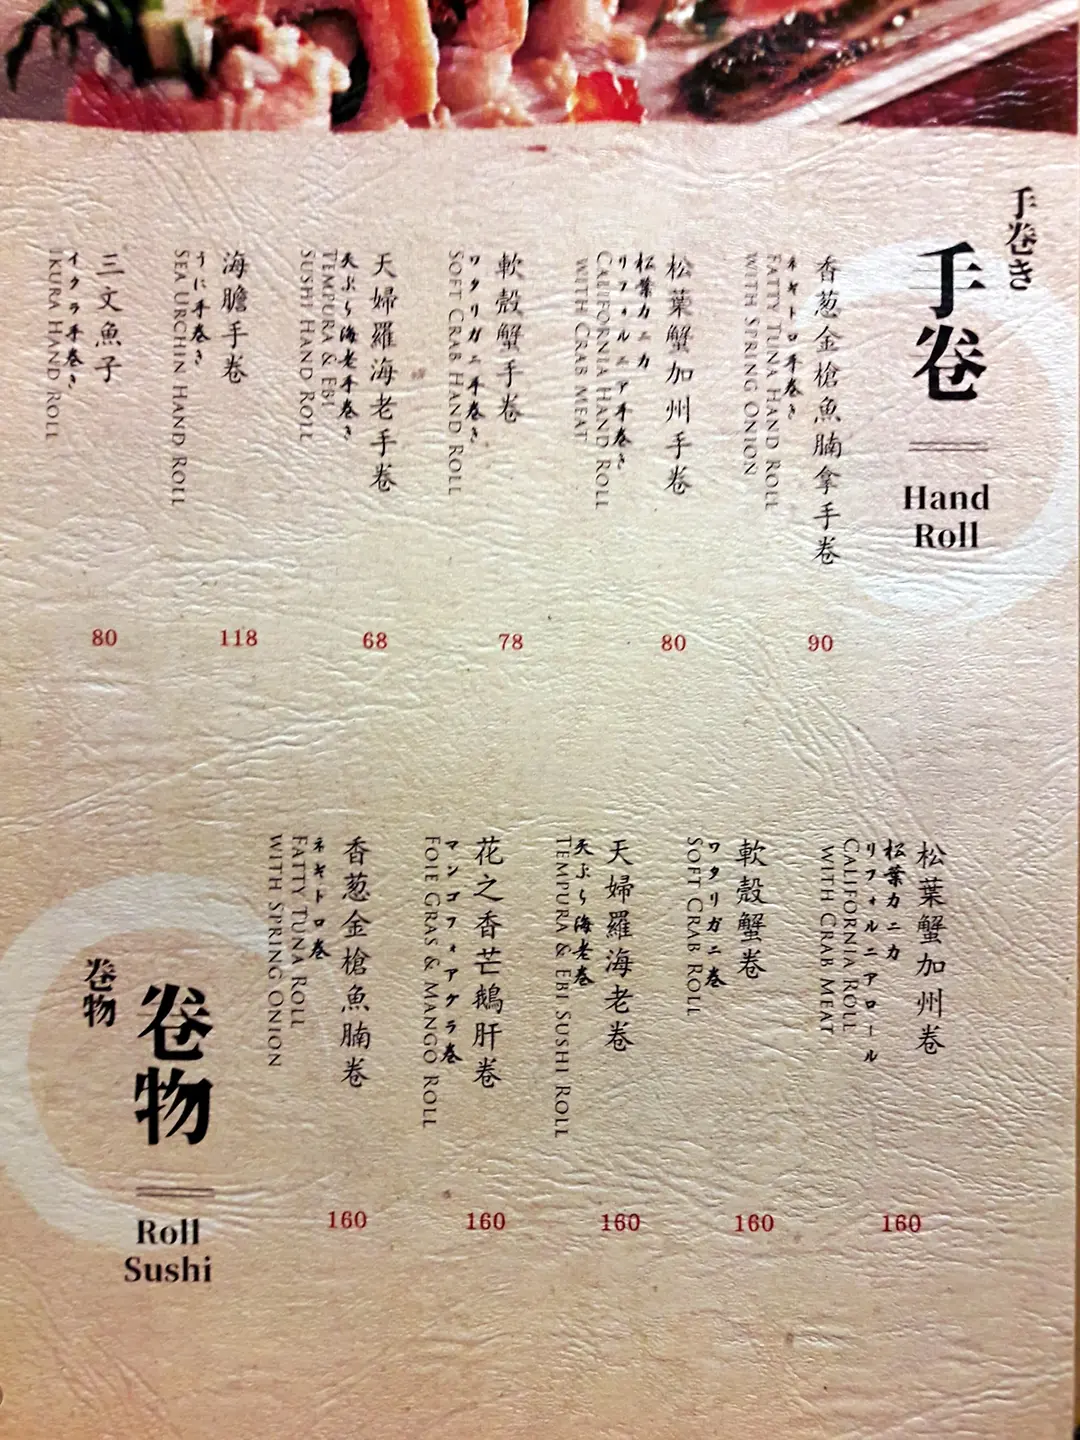 手巻き
手卷
Hand
Roll
香葱金槍魚腩拿手卷
ネギトロ手巻き
Fatty Tuna Hand Roll
with Spring Onion
90
松葉蟹加州手卷
松葉カニカ
リフォルニア手巻き
California Hand Roll
with Crab Meat
80
軟殼蟹手卷
ワタリガニ手巻き
Soft Crab Hand Roll
78
天婦羅海老手卷
天ぷら海老手巻き
Tempura & Ebi
Sushi Hand Roll
68
海膽手卷
うに手巻き
Sea Urchin Hand Roll
118
三文魚子
イクラ手巻き
Ikura Hand Roll
80
松葉蟹加州卷
松葉カニカ
リフォルニアロール
California Roll
with Crab Meat
160
軟殼蟹卷
ワタリガニ巻
Soft Crab Roll
160
天婦羅海老卷
天ぷら海老巻
Tempura & Ebi Sushi Roll
160
花之香芒鵝肝卷
マンゴフォアグラ巻
Foie Gras & Mango Roll
160
香葱金槍魚腩卷
ネギトロ巻
Fatty Tuna Roll
with Spring Onion
160
卷物
巻物
Roll
Sushi